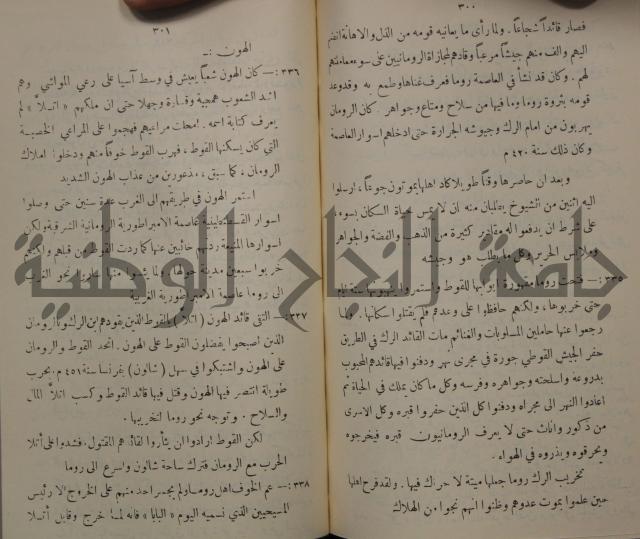 ٣٠٠
فصار قائداً شجاعاً . ولما رأى ما يعانيه قومه من الذل والاهانة انضم
اليهم والف منهم جيشاً مرعباً وقادهم لمجازاة الرومانيين على سوء معاملتهم
لهم . وكان قد نشأ في العاصمة روما فعرف غناها وطمع به وقد وعد
قومه بثروة روما وما فيها من سلاح ومتاع وجواهر . كان الرومان
يهربون من امام الرك وجيوشه الجرارة حتى ادخلهم اسوار العاصمة
وكان ذلك سنة ٤٢٠ م
وبعد ان حاصرها وقتاً طويلا كاد اهلها يموتون جوعاً ، ارسلوا
اليه اثنين من الشيوخ يطلبان منه ان لا يمس حياة السكان بسوء
على شرط ان يدفعوا له مقادير كثيرة من الذهب والفضة والجواهر
وملابس الحرير وكل ما يطلب هو وجيشه
٣٣٥ :— فتحت روما مقهورة ابوابها للقوط واستمروا ينهبونها ستة ايام
حتى خربوها ، ولكنهم حافظوا على وعدهم فلم يقتلوا سكانها . فلما
رجعوا عنها حاملين المسلوبات والغنائم مات القائد الرك في الطريق
حفر الجيش القوطي جورة في مجرى نهر ودفنوا فيها قائدهم المحبوب
بدروعه واسلحته وجواهره وفرسه وكل ما كان يملك في الحياة ثم
اعادوا النهر الى مجراه ودفنوا كل الذين حفروا قبره وكل الاسرى
من ذكور واناث حتى لا يعرف الرومانيون قبره فيخرجوه
ويحرقوه ويذروه في الهواء .
تخريب الرك روما جعلها ميتة لا حراك فيها . ولقد فرح اهلها
حين علموا بموت عدوهم وظنوا انهم نجوا من الهلاك
٣٠١
الهون :—
٣٣٦ :— كان الهون شعباً يعيش في وسط آسيا على رعي المواشي وهم
اشد الشعوب همجية وقساوة وجهلا حتى ان ملكهم « اتلا » لم
يعرف كتابة اسمه . امحلت مراعيهم فهجموا على المراعي الخصبة
التي كان يسكنها القوط ، فهرب القوط خوفاً منهم ودخلوا املاك
الرومان ، كما سبق ، مذعورين من عذاب الهون الشديد
استمر الهون في طريقهم الى الغرب عدة سنين حتى وصلوا
اسوار القسطنطينية عاصمة الامبراطورية الرومانية الشرقية ولكن
اسوارها المنيعة ردتهم خائبين عنها كما ردت القوط من قبلهم ولكنهم
خربوا سبعين مدينة حولها ولما يئسوا منها ساروا نحو الغرب
الى روما عاصمة الامبراطورية الغربية
٣٣٧ :— التقى قائد الهون ( اتلا ) بالقوط الذين يقودهم ابن الرك وبالرومان
الذين اصبحوا يفضلون القوط على الهون . اتحد القوط والرومان
على الهون واشتبكوا في سهل ( شالون ) بفرنسا سنة ٤٥١ م . بحرب
طويلة انتصر فيها الهون وقتل فيها قائد القوط وكسب اتلا المال
والسلاح . وتوجه نحو روما لتخريبها .
لكن القوط ارادوا ان يثأروا لقائدهم المقتول ، فشددوا على أتلا
الحرب مع الرومان فترك ساحة شالون واسرع الى روما
٣٣٨ :— عم الخوف اهل روما ولم يجسر احد منهم على الخروج الا رئيس
المسيحيين الذي نسميه اليوم « البابا » فانه لما خرج وقابل أتلا
جامعة النجاح الوطنية